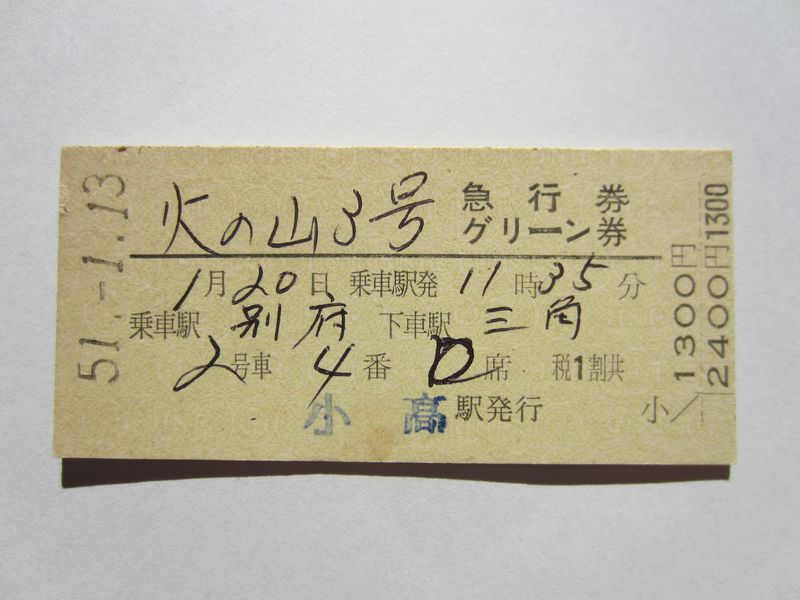 51.-1.13
火の山3号 急行券
グリーン券
1月20日 乗車駅発 11時35分
乗車駅 別府 下車駅 三角
2号車 4番 D席 税1割共
小高駅発行
小/
1300円
2400円1300